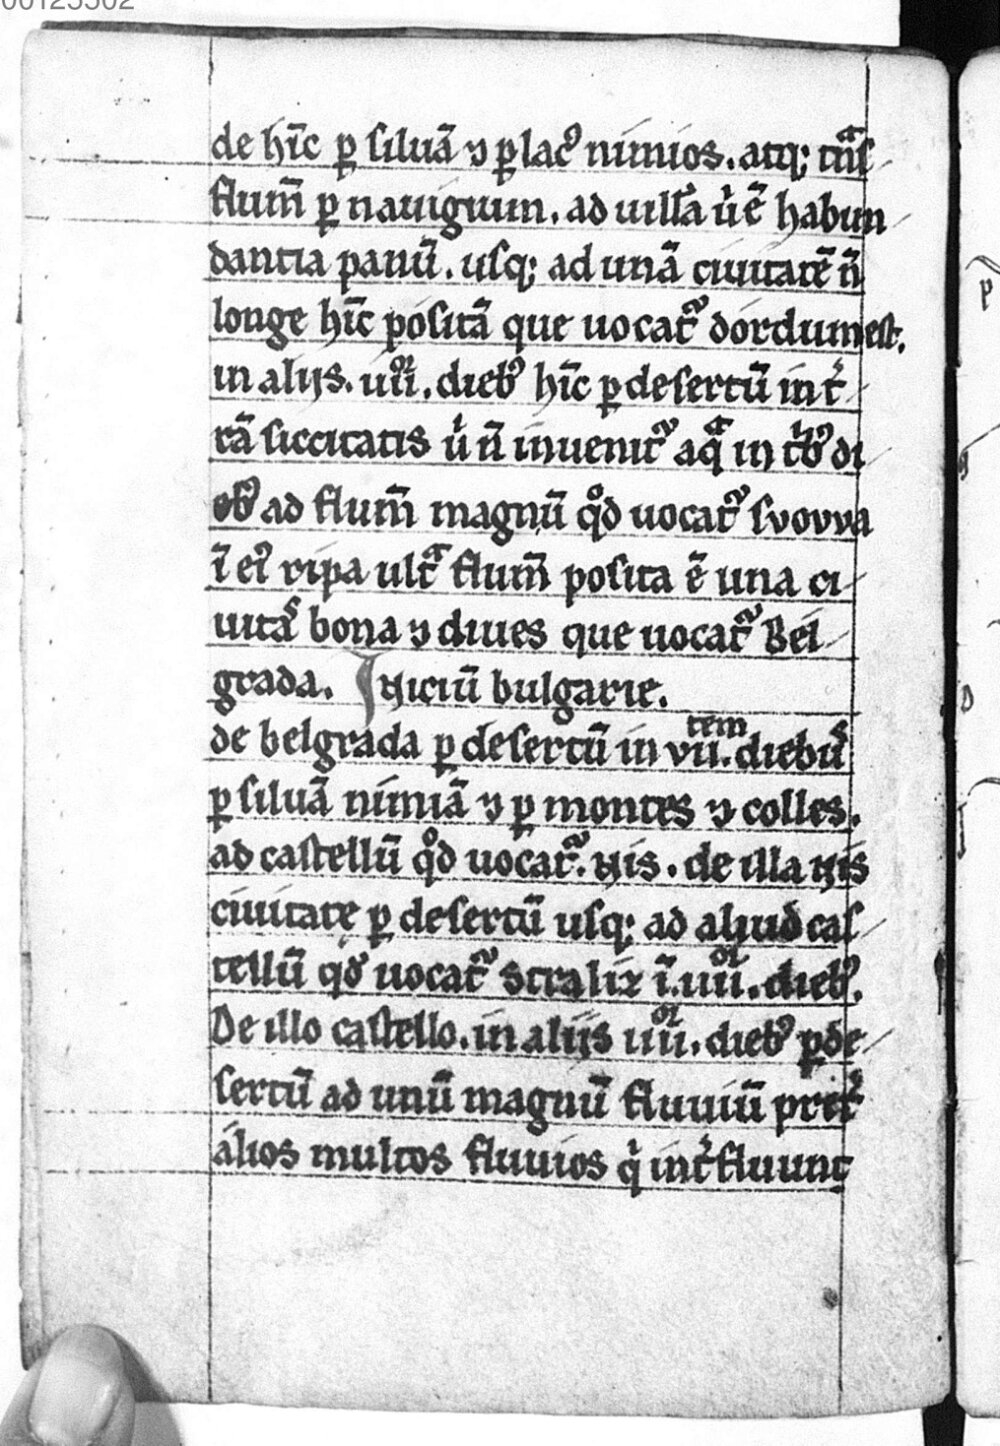 00125502
de hīc ꝑ siluā ⁊ ꝑ lacꝰ nimios. atqꝫ tͣns
flum̄ ꝑ nauigium. ad uillā u̍ ē habun
dantia panū. usqꝫ ad unā ciuitatē n̄
longe hīc pósitā que uocat᷑ dórdumest.
in alijs. uıııı. diebꝰ hīc ꝑ desertū in t̍
rā siccitatis u̍ n̄ inuenit᷑ aqͣ in t̍bꝰ di
ebꝰ ad flum̄ magnū qͦd uocat᷑ svovva
ī eiꝰ ripa ultͣ flum̄ posita ē una ci
uitas bona ⁊ diues que uocat᷑ Bel
grada. Iniciū bulgarie.
de belgrada ꝑ desertū in vii.tem diebus
ꝑ siluā nimiā ⁊ ꝑ montes ⁊ colles.
ad castellū qͦd uocat᷑. Nis. de illa Nis
ciuitate ꝑ desertū usqꝫ ad aliud cas
tellū qd̛ uocat᷑ Straliz ī. iiii.or diebꝰ.
De illo castello. in alijs iiii.or diebꝰ ꝑ de
sertū ad unū magnū fluuiū prıt̍
álios multos fluuios qͥ int̍fluunt